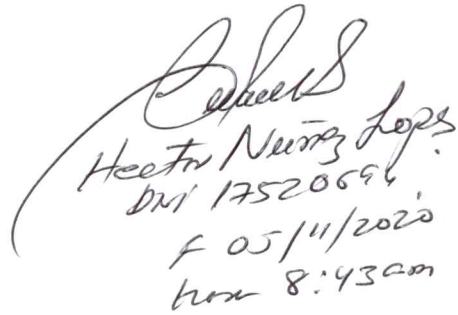 Hector Nuñez Lopez
DNI 17520694
F 05/11/2020
hora 8:43am